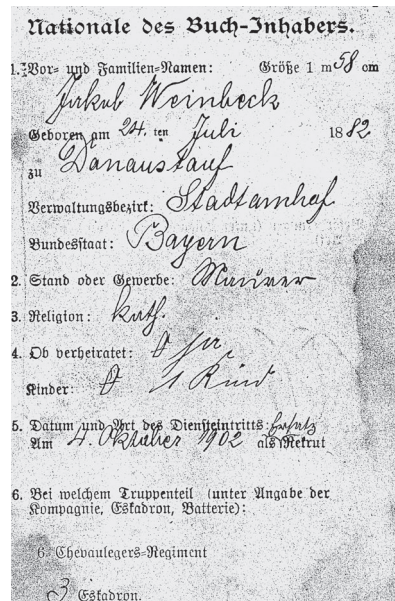 Nationale des Buch-Inhabers.
1. Vor- und Familien-Namen: Größe 1 m 58 cm
Jakob Weinbeck
Geboren am 24. ten Juli 1882
zu Donaustauf
Verwaltungsbezirk: Stadtamhof
Bundesstaat: Bayern
2. Stand oder Gewerbe: Maurer
3. Religion: kath.
4. Ob verheiratet: 0 ja
Kinder: 0 1 Kind
5. Datum und Art des Diensteintritts: Ersatz
Am 4. Oktober 1902 als Rekrut
6. Bei welchem Truppenteil (unter Angabe der
Kompagnie, Eskadron, Batterie):
6. Chevaulegers-Regiment
3 Eskadron.